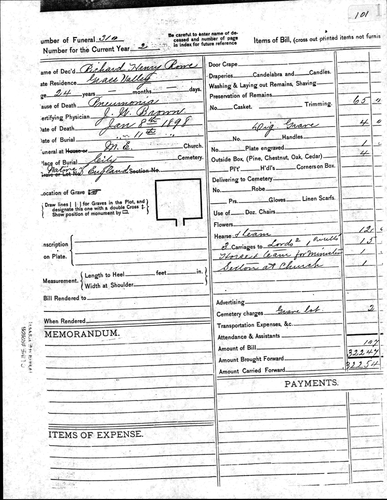 101
Number of Funeral 310
Number for the Current Year 2
Be careful to enter name of deceased and number of page in index for future reference
Items of Bill, (cross out printed items not furnis
Name of Dec'd. Richard Henry Rowe
Late Residence Grass Valley
Age 24 years months days.
Cause of Death Pneumonia
Certifying Physician J. H. Brown
Date of Death Jan 8th 1898
Date of Burial " 11th "
Funeral at House or M. E. Church.
Place of Burial City Cemetery.
England Section No.
Location of Grave
Draw lines ( ) for Graves in the Plot, and designate this one with a double Cross
Show position of monument by
Inscription
on Plate.
Measurement. Length to Heel feet in.
Width at Shoulder
Bill Rendered to
When Rendered
MEMORANDUM.
ITEMS OF EXPENSE.
Door Crape
Draperies Candelabra and Candles.
Washing & Laying out Remains, Shaving
Preservation of Remains
No. Casket. Trimming. 65
Dig Grave 4
No. Handles
Plate engraved 1
Outside Box, (Pine, Chestnut, Oak, Cedar) 4
Pl'f. H'dl's Corners on Box.
Delivering to Cemetery
No. Robe
Prs. Gloves Linen Scarfs.
Use of Doz. Chairs
Flowers
Hearse & team 12
2 Carriages to 15
Horse & team for Minister 1
Sexton at Church 1
Advertising
Cemetery charges Grave lot 2
Transportation Expenses, &c.
Attendance & Assistants
Amount of Bill 107
Amount Brought Forward 32247
Amount Carried Forward 32254
PAYMENTS.